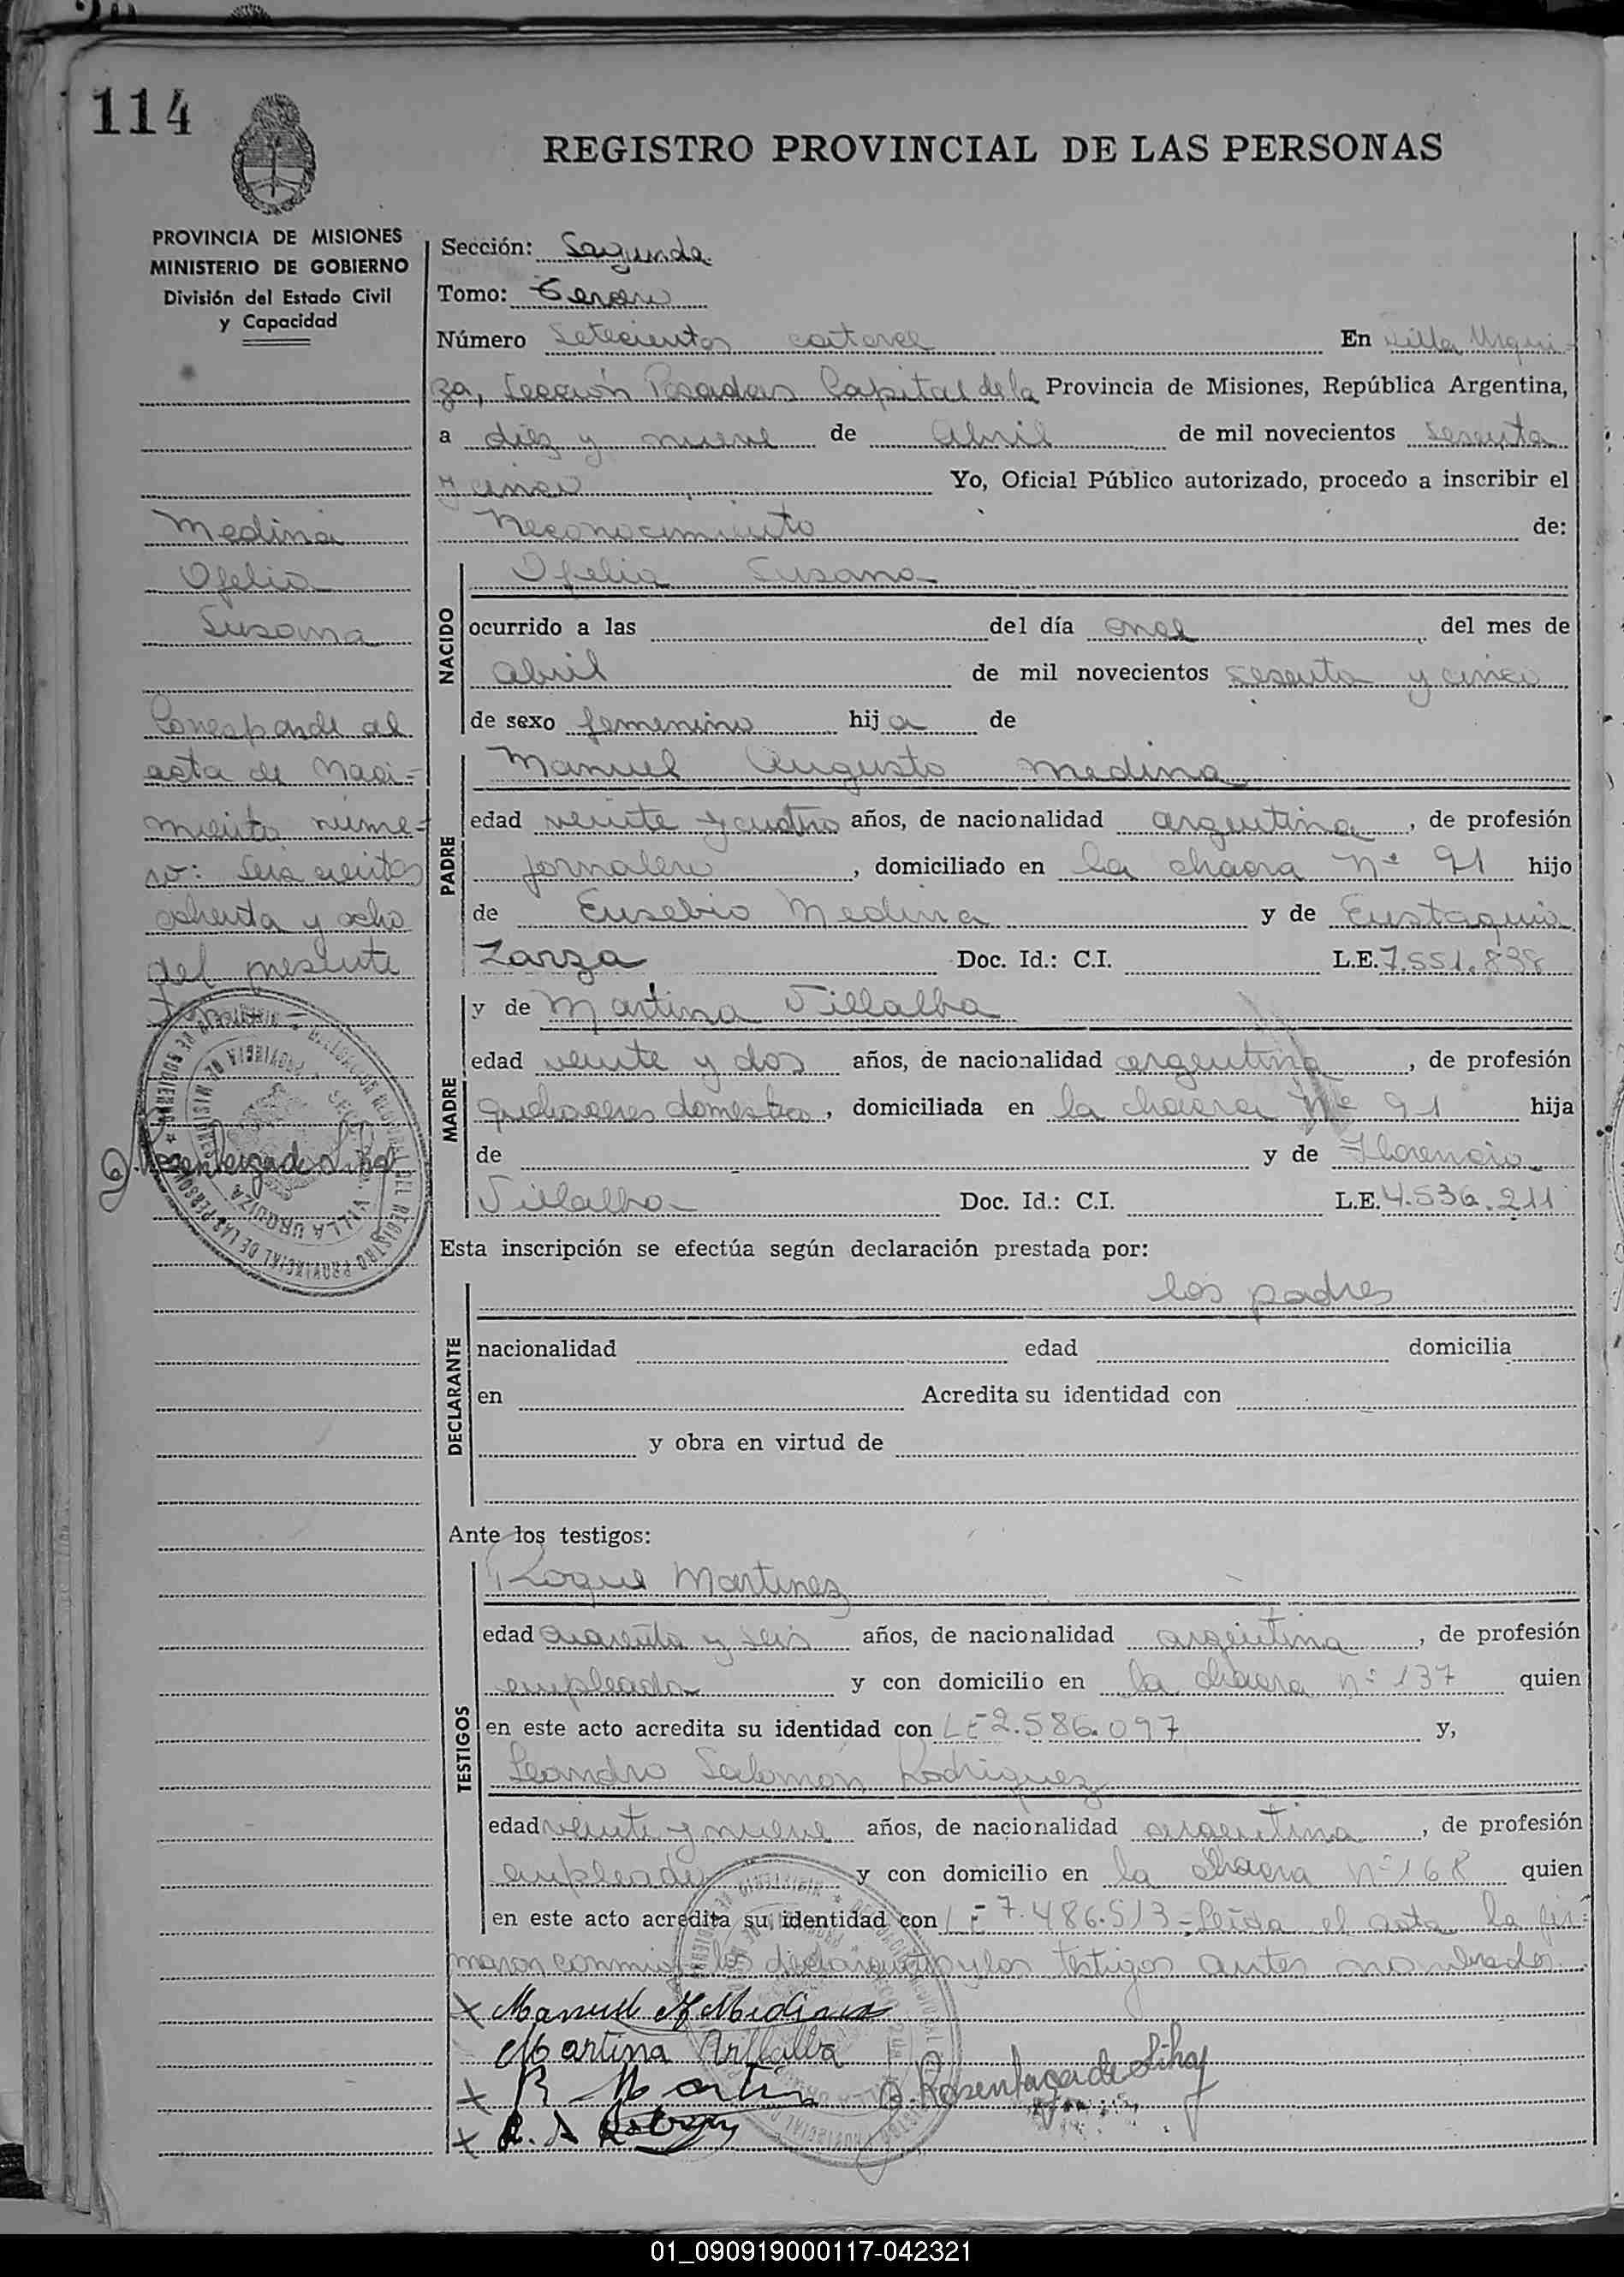 114
REGISTRO PROVINCIAL DE LAS PERSONAS
PROVINCIA DE MISIONES
MINISTERIO DE GOBIERNO
División del Estado Civil
y Capacidad
Medina
Ofelia
Susana
Corresponde al
acta de Naci-
miento núme-
ro: Seis cientos
ochenta y ocho
del presente
tomo
Sección: Segunda
Tomo: Tercero
Número Setecientos catorce En Villa Urqui-
za, Sección Posadas Capital de la Provincia de Misiones, República Argentina,
a diez y nueve de Abril de mil novecientos sesenta
y cinco Yo, Oficial Público autorizado, procedo a inscribir el
Reconocimiento de:
NACIDO
Ofelia Susana
ocurrido a las del día once del mes de
abril de mil novecientos sesenta y cinco
de sexo femenino hija de
PADRE
Manuel Augusto Medina
edad veinte y cuatro años, de nacionalidad argentina, de profesión
jornalero, domiciliado en la chacra Nº 91 hijo
de Eusebio Medina y de Eustaquia
Zarza Doc. Id.: C.I. L.E. 7.551.838
MADRE
y de Martina Villalba
edad veinte y dos años, de nacionalidad argentina, de profesión
quehaceres domestico, domiciliada en la chacra Nº 91 hija
de y de Florencia
Villalba Doc. Id.: C.I. L.E. 4.536.211
Esta inscripción se efectúa según declaración prestada por:
DECLARANTE
los padres
nacionalidad edad domicilia
en Acredita su identidad con
y obra en virtud de
Ante los testigos:
TESTIGOS
Roque Martinez
edad cuarenta y seis años, de nacionalidad argentina, de profesión
empleado y con domicilio en la chacra nº 137 quien
en este acto acredita su identidad con LE 2.586.097 y,
Leandro Salomón Rodriguez
edad veinte y nueve años, de nacionalidad argentina, de profesión
empleado y con domicilio en la chacra Nº 168 quien
en este acto acredita su identidad con LE 7.486.513 - Leida el acta la fir-
maron conmigo los declarantes y los testigos antes nombrados.
Manuel A Medina
Martina Villalba
R Martin
01_090919000117-042321